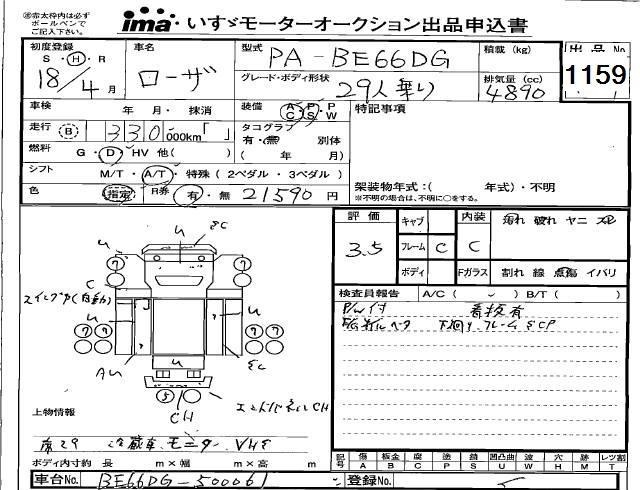 ㊟赤太枠内は必ず
ボールペンで
ご記入下さい。
ima いすゞモーターオークション出品申込書
初度登録 S・H・R 18/4月
車名 ローザ
型式 PA-BE66DG
積載 (kg)
出品No 1159
グレード・ボディ形状 29人乗り
排気量 (cc) 4890
車検 年 月・ 抹消
装備 AC PS PW
特記事項
走行 (B) 330000km「 」
タコグラフ 有・無 別体
( 年 月)
燃料 G・D・HV 他( )
シフト M/T・A/T・特殊 (2ペダル・3ペダル)
架装物年式:( 年式)・不明
※不明の場合は、不明に○をする。
色 指定 R券 有・無 21590 円
評価 3.5
キャブ
内装 C
汚れ 破れ ヤニ スレ
フレーム C
ボディ
Fガラス 割れ 線 点傷 イバリ
検査員報告 A/C( ) B/T( )
P/W付 看板有
下回り フレーム
u
u
C
C
u
u
AU
u
CH
CH
7
7
7
7
7
7
5
上物情報
冷蔵車 モニター VHS
ボディ内寸約 長 m×幅 m×高 m
記号 傷A 板金B 腐C 塗P 錆S 凹凸曲U 波W 穴H 跡M レツ割T
車台No. BE66DG-500061
登録No.